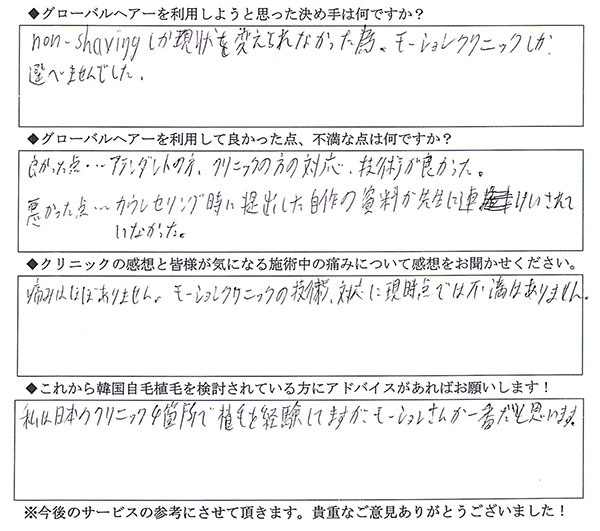 ◆グローバルヘアーを利用しようと思った決め手は何ですか？
non-shavingしか現状を変えられなかった為。モーションクリニックしか
選べませんでした。
◆グローバルヘアーを利用して良かった点、不満な点は何ですか？
良かった点…アテンダントの方、クリニックの方の対応、技術が良かった。
悪かった点…カウンセリング時に提出した自作の資料が先生に連けいされて
いなかった。
◆クリニックの感想と皆様が気になる施術中の痛みについて感想をお聞かせください。
痛みはほぼありません。モーションクリニックの技術、対応に現時点では不満はありません。
◆これから韓国自毛植毛を検討されている方にアドバイスがあればお願いします！
私は日本のクリニック4箇所で植毛を経験してますが、モーションさんが一番だと思います。
※今後のサービスの参考にさせて頂きます。貴重なご意見ありがとうございました！